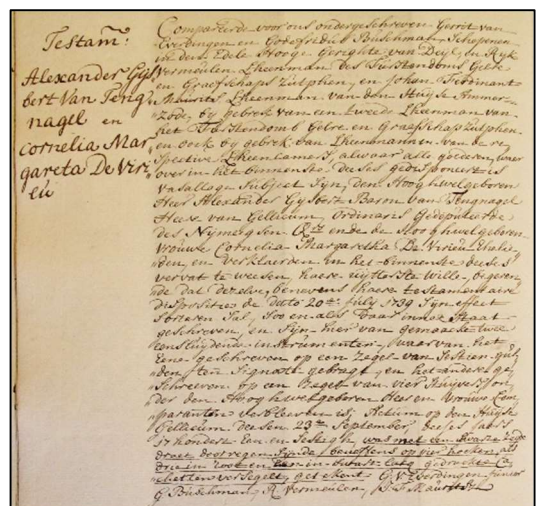 Testam:
Alexander Gijs
bert Van Teng
nagel en
Cornelia Mar
gareta De Viri
eu
Compareerde voor ons ondergeschreven Gerrit van
Everdingen en Godefridus Büschman Schepenen
in den Edele Hooge Gerighte van Deijl, en Rijk
Vermeulen Lheenman des furstendoms Gelre
en Graefschaps Zutphen, en Johan Ferdinant
Mauritz Lheenman van den Huijse Ammer-
zode, bij gebrek van een tweede Lheenman van
het furstendomb Gelre en Graefschap Zutphen
en oock bij gebrek van Lheenmannen van de re
spective Lheenkamers, alwaer alle goederen, waer
over in het binnenste deeses gedisponeert is
vasallage subject sijn, den Hoogh welgeboren
Heer Alexander Gijsbert Baron van Tengnagel
Heer van Gellicum, Ordinaris Gedeputeerde
des Nijmeegsen en de Hoogh welgeboren
Vrouwe Cornelia Margaretha De Virieu Ehelie
den, en verklaerden in het binnenste deeses
vervat te weesen, haere uijtterste wille, begeren
de dat dezelve, benevens haere testamentaire
dispositie de dato 20te julij 1739 sijn effect
sorteeren sal, soo en als daar inne staat
geschreven, en sijn hier van gemaeckt twee
eensluijdende instrumenten, waar van het
eene geschreven op een zegel van sestien gul
den ten signoth gebragt, en het andere ge
schreeven op een zegel van vier stuijvers on
der den Hoogh welgeboren Heer en Vrouwe Com
paranten is, Actum op den Huijse
Gellicum deesen 23te September deeses jaers
17 hondert een en sestigh was met een swarte zijde
draet doorregen sijnde, beneffens op vier hoecken als
drie in root en een in swart lack gedruckte Ca
chetten versegelt, getekent G: V: Everdingen, junior
G Büschman, R Vermeulen, J: F: Mauritz